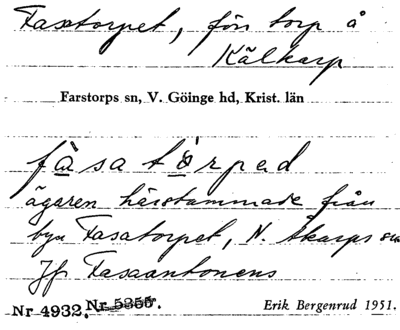 Fasatorpet, förr torp å
Kälkarp
Farstorps sn, V. Göinge hd, Krist. län
fàsatòrped
ägaren härstammade från
byn Fasatorpet, N. Åkarps sn
Jfr Fasaantonens
Nr 4932. Nr. 5355.
Erik Bergenrud 1951.